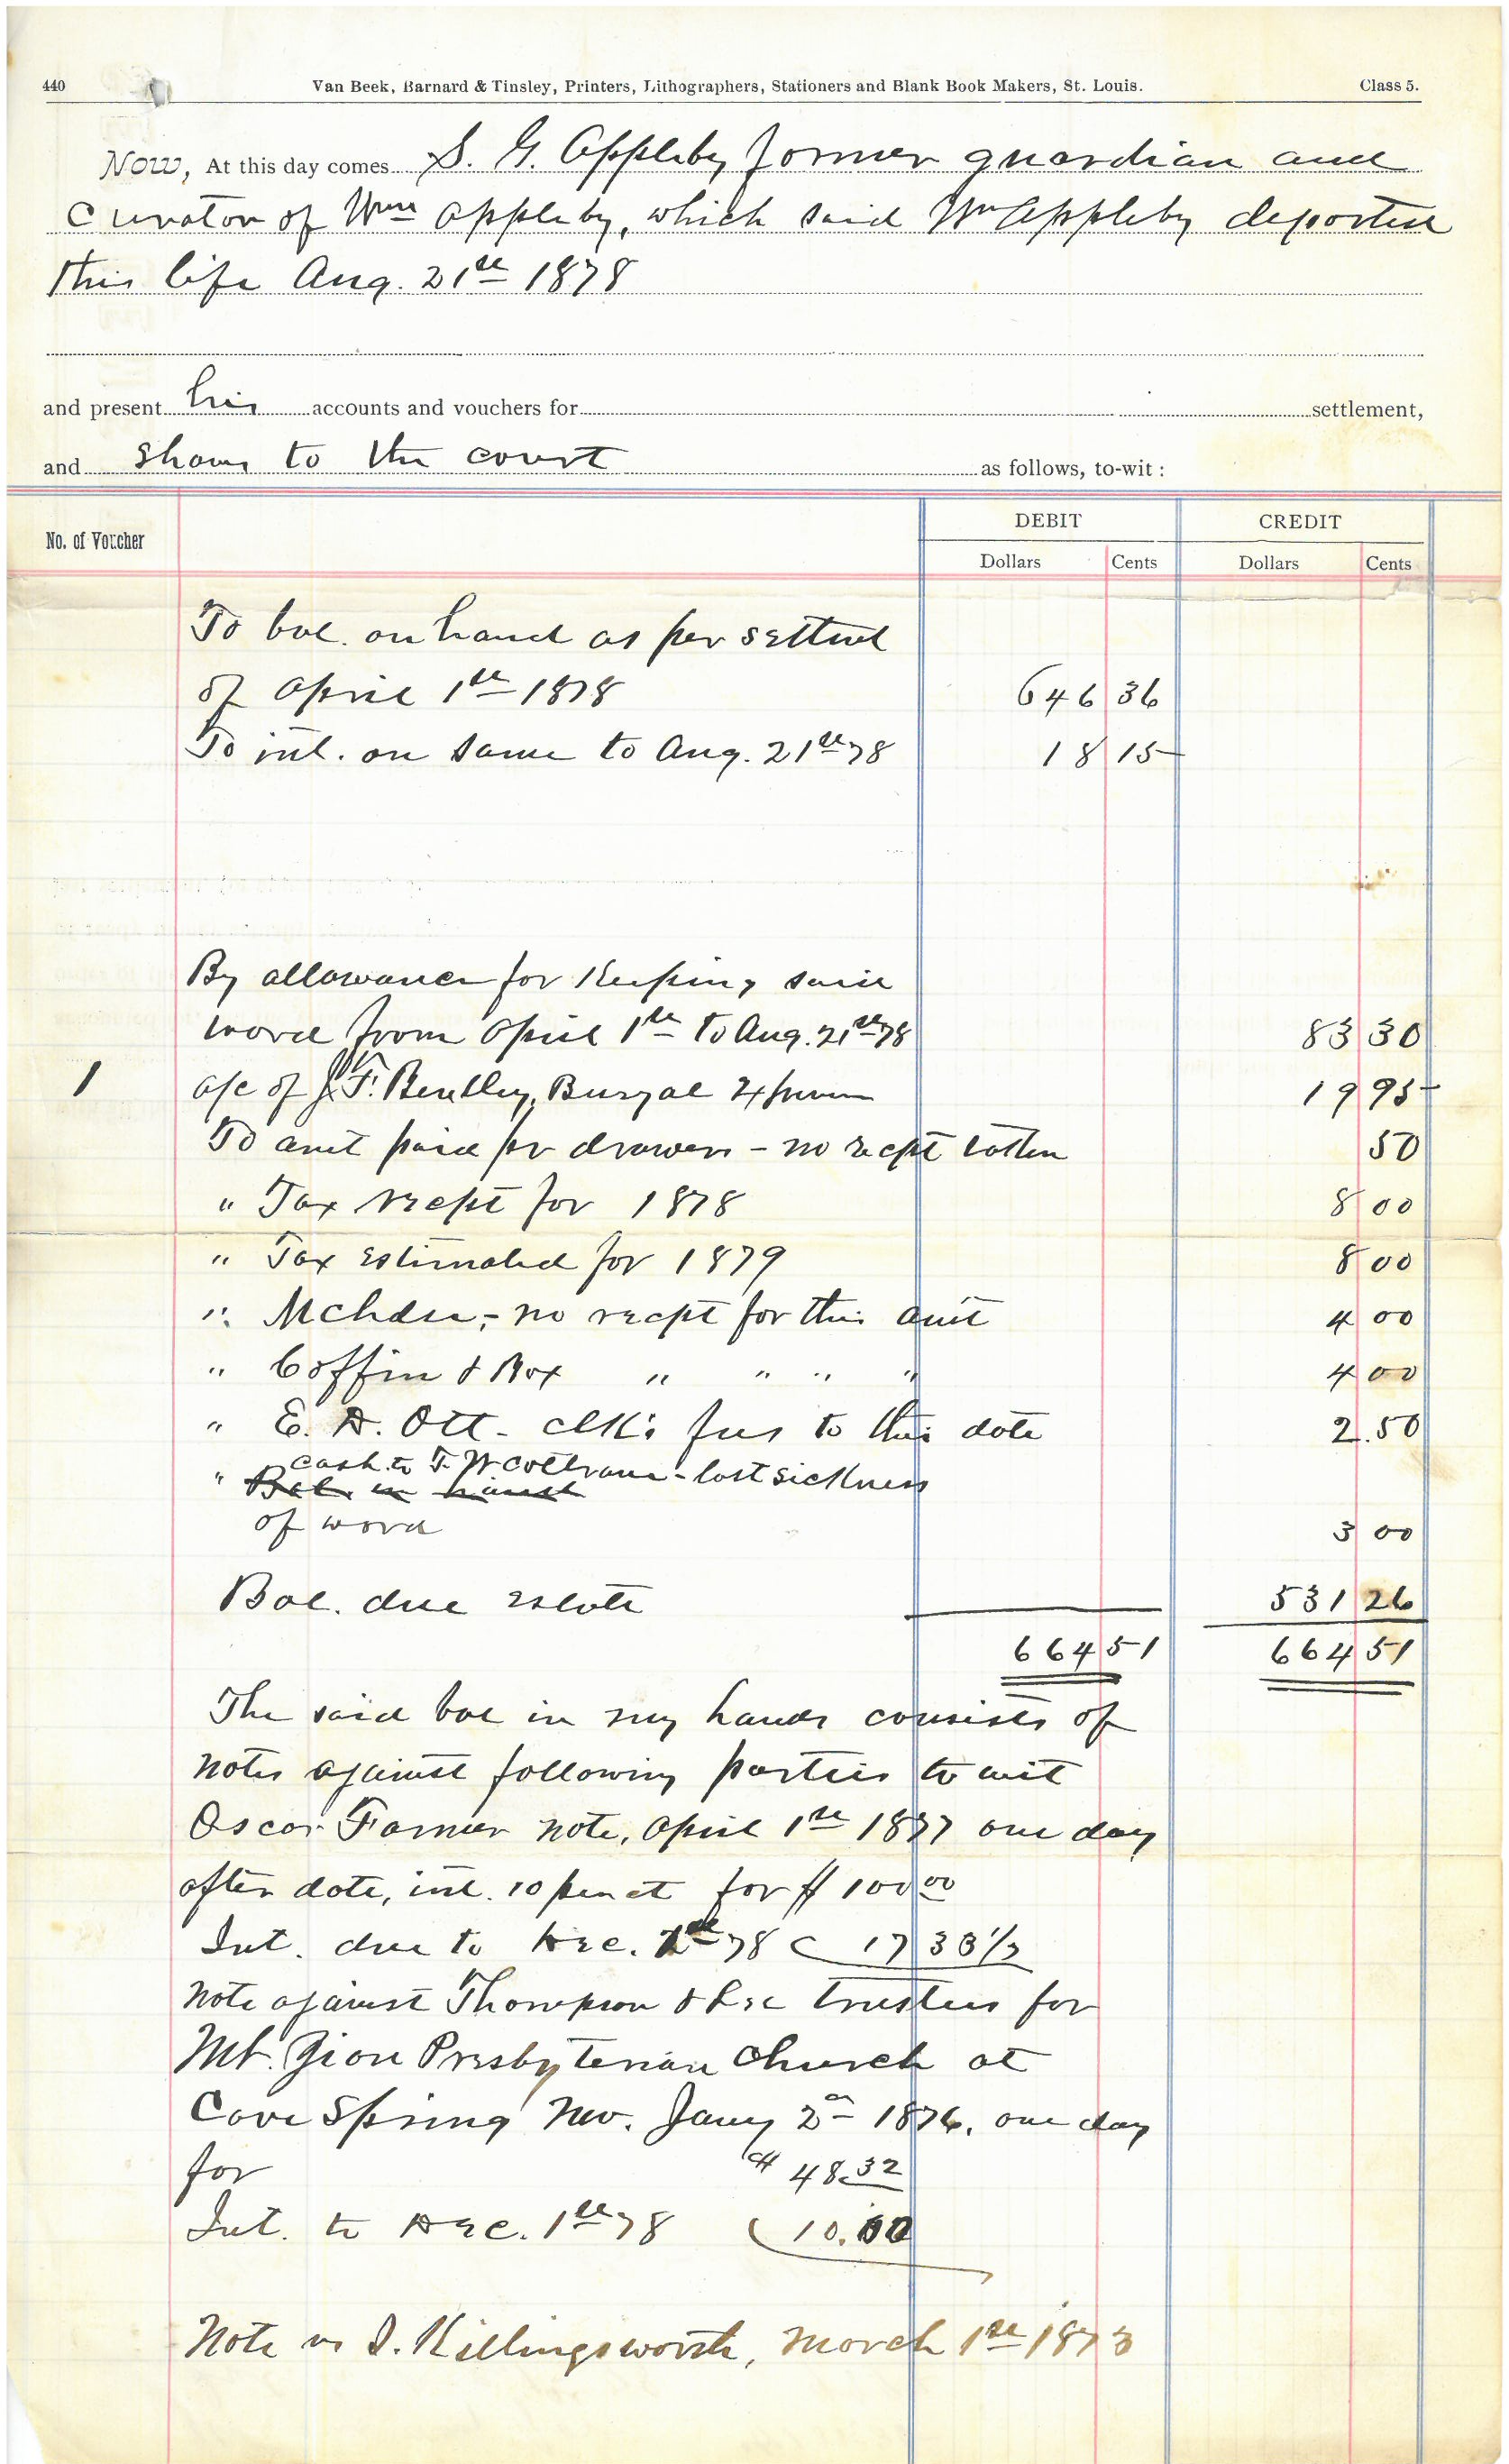 440 Van Beek, Barnard & Tinsley, Printers, Lithographers, Stationers and Blank Book Makers, St. Louis. Class 5.
Now, At this day comes S. G. Appleby former guardian and
Curator of Wm Appleby, which said Wm Appleby departed
this life Aug. 21st 1878
and present his accounts and vouchers for settlement,
and shows to the court as follows, to-wit:
No. of Voucher DEBIT CREDIT
Dollars Cents Dollars Cents
To bal. on hand as per settmt
of April 1st 1878 646 36
To int. on same to Aug. 21st 78 18 15
By allowance for Keeping said
ward from April 1st to Aug. 21st 78 83 30
1 a/c of J. F. Bentley, Buryal 19 95
To amt paid for drawers - no recpt taken 50
" Tax recpt for 1878 8 00
" Tax estimated for 1879 8 00
" Mchdse - no recpt for this amt 4 00
" Coffin & Box " " " " 4 00
" E. D. Ott - clk's fees to this date 2.50
cash to F. W Coltrane - last sickness
" Bal. in hand
of ward 3 00
Bal. due estate 531 26
664 51 664 51
The said bal in my hands consists of
notes against following parties to wit
Oscar Farmer note, April 1st 1877 one day
after date, int. 10 per ct for $ 100 00
Int. due to Dec. 78 17 33 1/3
Note against Thompson & Lee trustees for
Mt. Zion Presbyterian Church at
Cave Spring Mo. Jany 2d 1876, one day
for $ 48.32
Int. to Dec. 1st 78 10.
Note vs S. Killingsworth, March 1st 1873